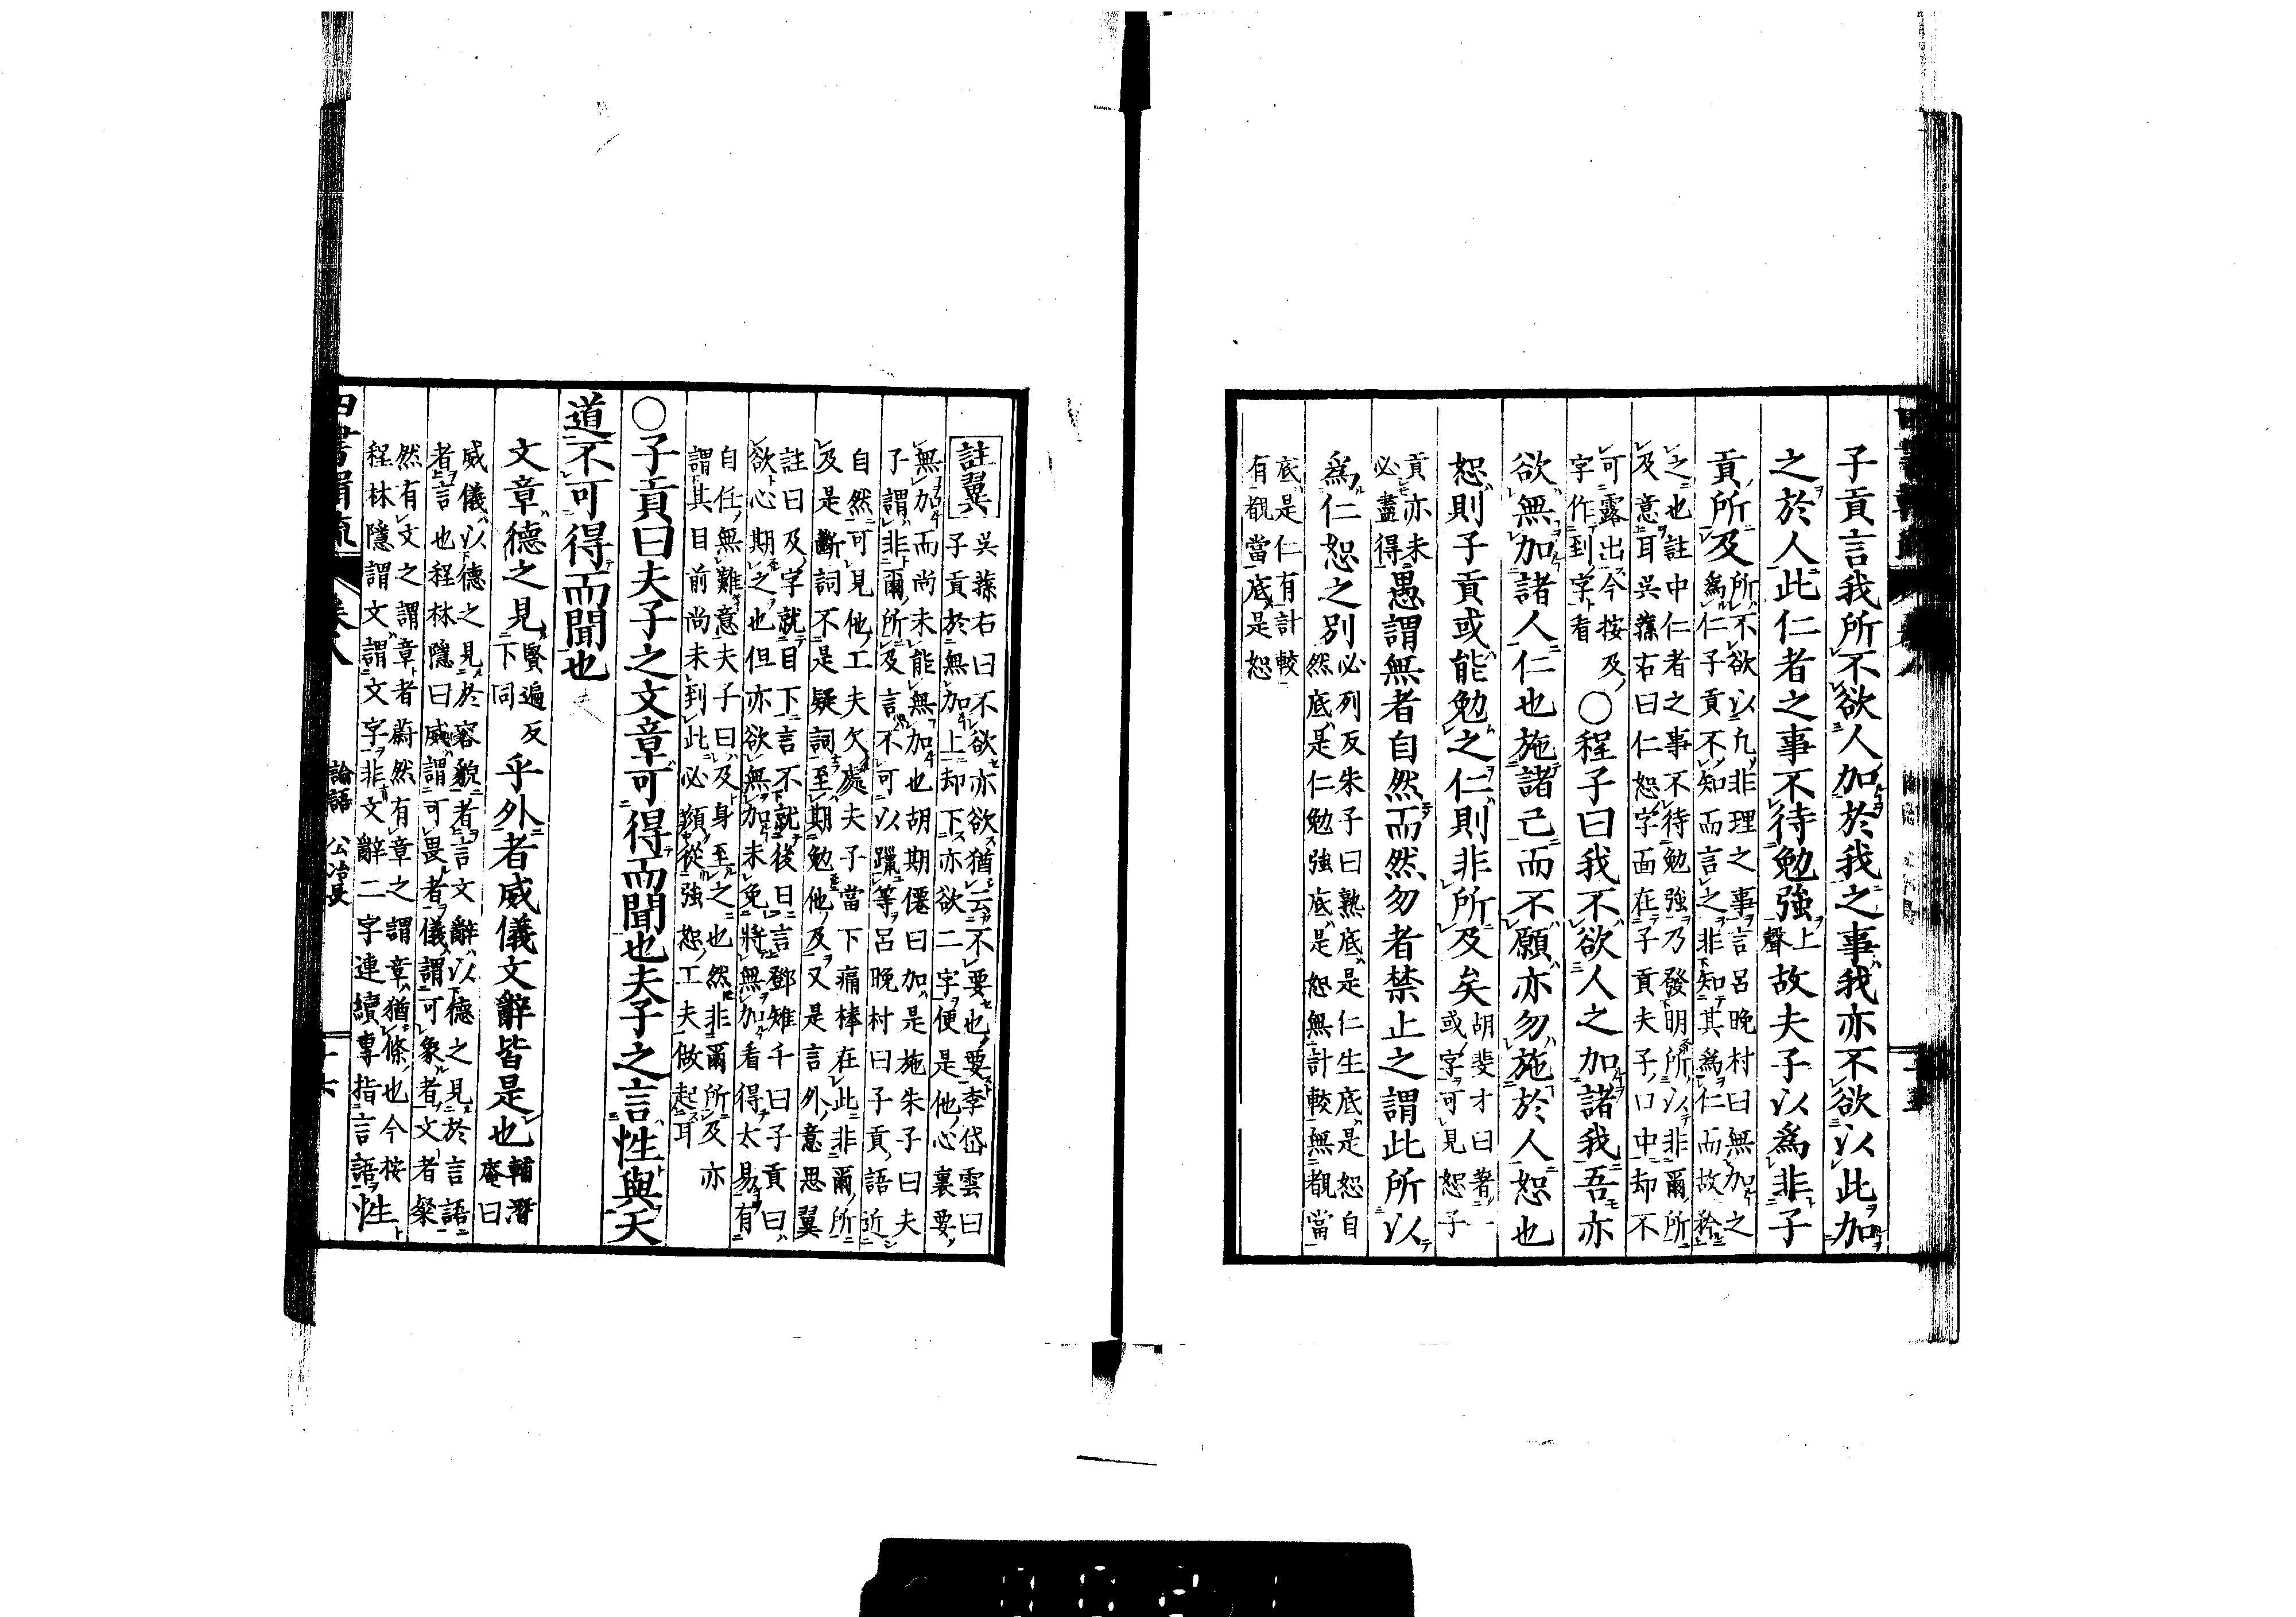 子貢言我所不欲人加於我之事我亦不欲以此加
之於人此仁者之事不待勉強上聲故夫子以爲非子
貢所及所不欲以凡非理之事言呂晩村曰無加之
爲仁子貢不知而言之非下知其爲仁而故矜
之也註中仁者之事不待勉強乃發明所以非爾所
及意耳吳蓀右曰仁恕字面在子貢夫子口中却不
可露出今按及
字作到字看○程子曰我不欲人之加諸我吾亦
欲無加諸人仁也施諸己而不願亦勿施於人恕也
恕則子貢或能勉之仁則非所及矣胡斐才曰著一
或字可見恕子
貢亦未
必盡得愚謂無者自然而然勿者禁止之謂此所以
爲仁恕之別必列反朱子曰熟底是仁生底是恕自
然底是仁勉強底是恕無計較無覩當
底是仁有計較
有覩當底是恕
註翼吳蓀右曰不欲亦欲猶云不要也要李岱雲曰
子貢於無加上却下亦欲二字便是他心裏要
無加而尚未能無加也胡期僊曰加是施朱子曰夫
子謂非爾所及言不可以躐等呂晩村曰子貢語近
自然可見他工夫欠處夫子當下痛棒在此非爾所
及是斷詞不是疑詞至期勉他及又是言外意思翼
註曰及字就目下言不就後日言鄧雉千曰子貢曰
欲心期之也但亦欲無加未免將無加看得太易有
自任無難意夫子曰及身至之也然非爾所及亦
謂其目前尚未到此必須從強恕工夫做起耳
○子貢曰夫子之文章可得而聞也夫子之言性與天
道不可得而聞也
文章德之見賢遍反
下同乎外者威儀文辭皆是也輔潛
庵曰
威儀以德之見於容貌者言文辭以德之見於言語
者言也程林隱曰威謂可畏者儀謂可象者文者粲
然有文之謂章者蔚然有章之謂章猶條也今按
程林隱謂文謂文字非文辭二字連續專指言語性
論語 公冶長